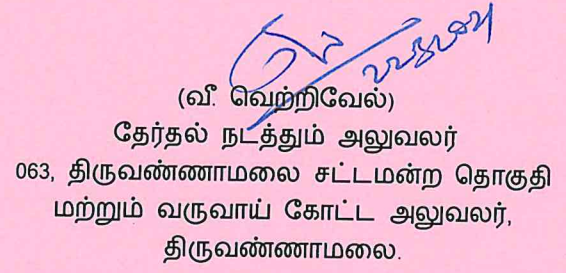 (வீ. வெற்றிவேல்)
தேர்தல் நடத்தும் அலுவலர்
063, திருவண்ணாமலை சட்டமன்ற தொகுதி
மற்றும் வருவாய் கோட்ட அலுவலர்,
திருவண்ணாமலை.